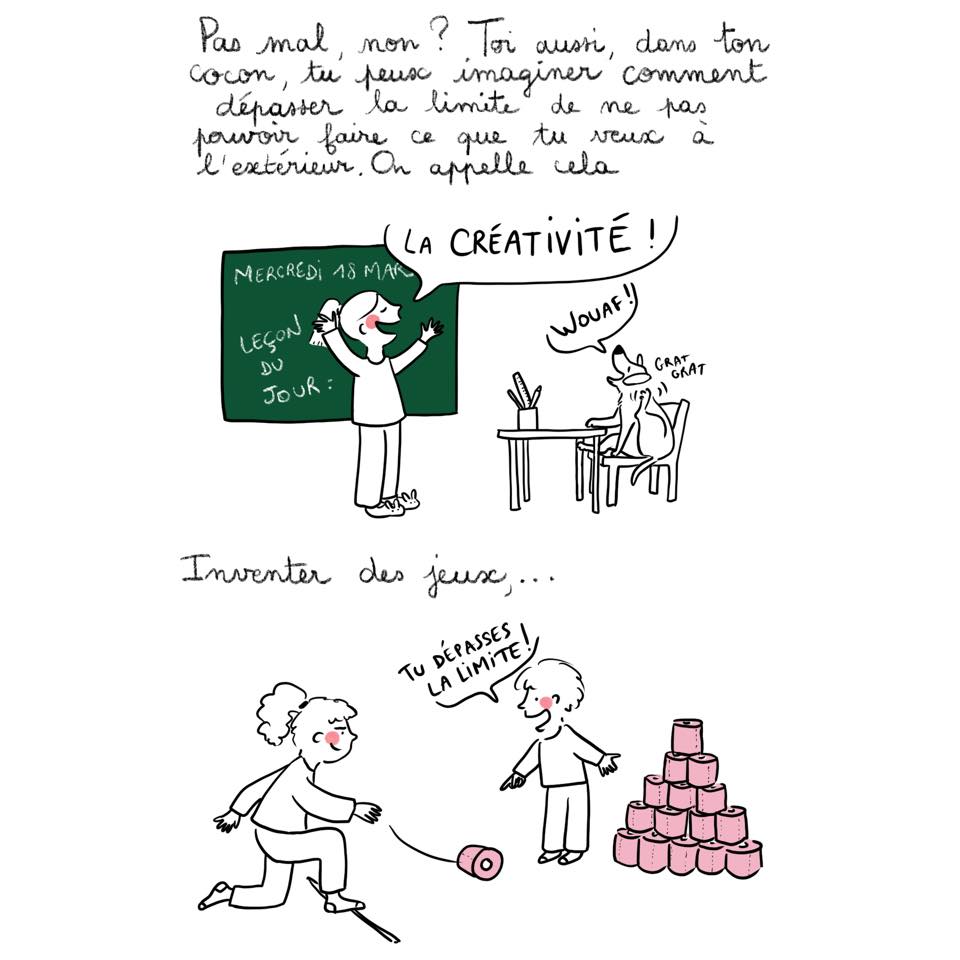 Pas mal, non ? Toi aussi, dans ton
cocon, tu peux imaginer comment
dépasser la limite de ne pas
pouvoir faire ce que tu veux à
l'extérieur. On appelle cela
LA CRÉATIVITÉ !
MERCREDI 18 MAR
LEÇON
DU
JOUR :
WOUAF !!
GRAT
GRAT
Inventer des jeux,...
TU DÉPASSES
LA LIMITE !